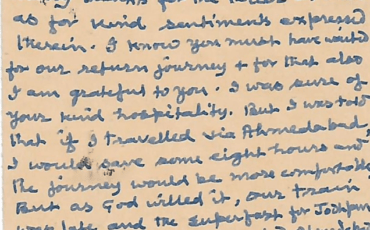 thanks for the
as for kind sentiments expressed
therein. I know you must have waited
for our return journey + for that also
I am grateful to you. I was sure of
your kind hospitality. But I was told
that if I travelled via Ahmedabad,
I would save some eight hours and
the journey would be more comfortable
But as God willed it, our train
was late and the superfast for Jodhpur